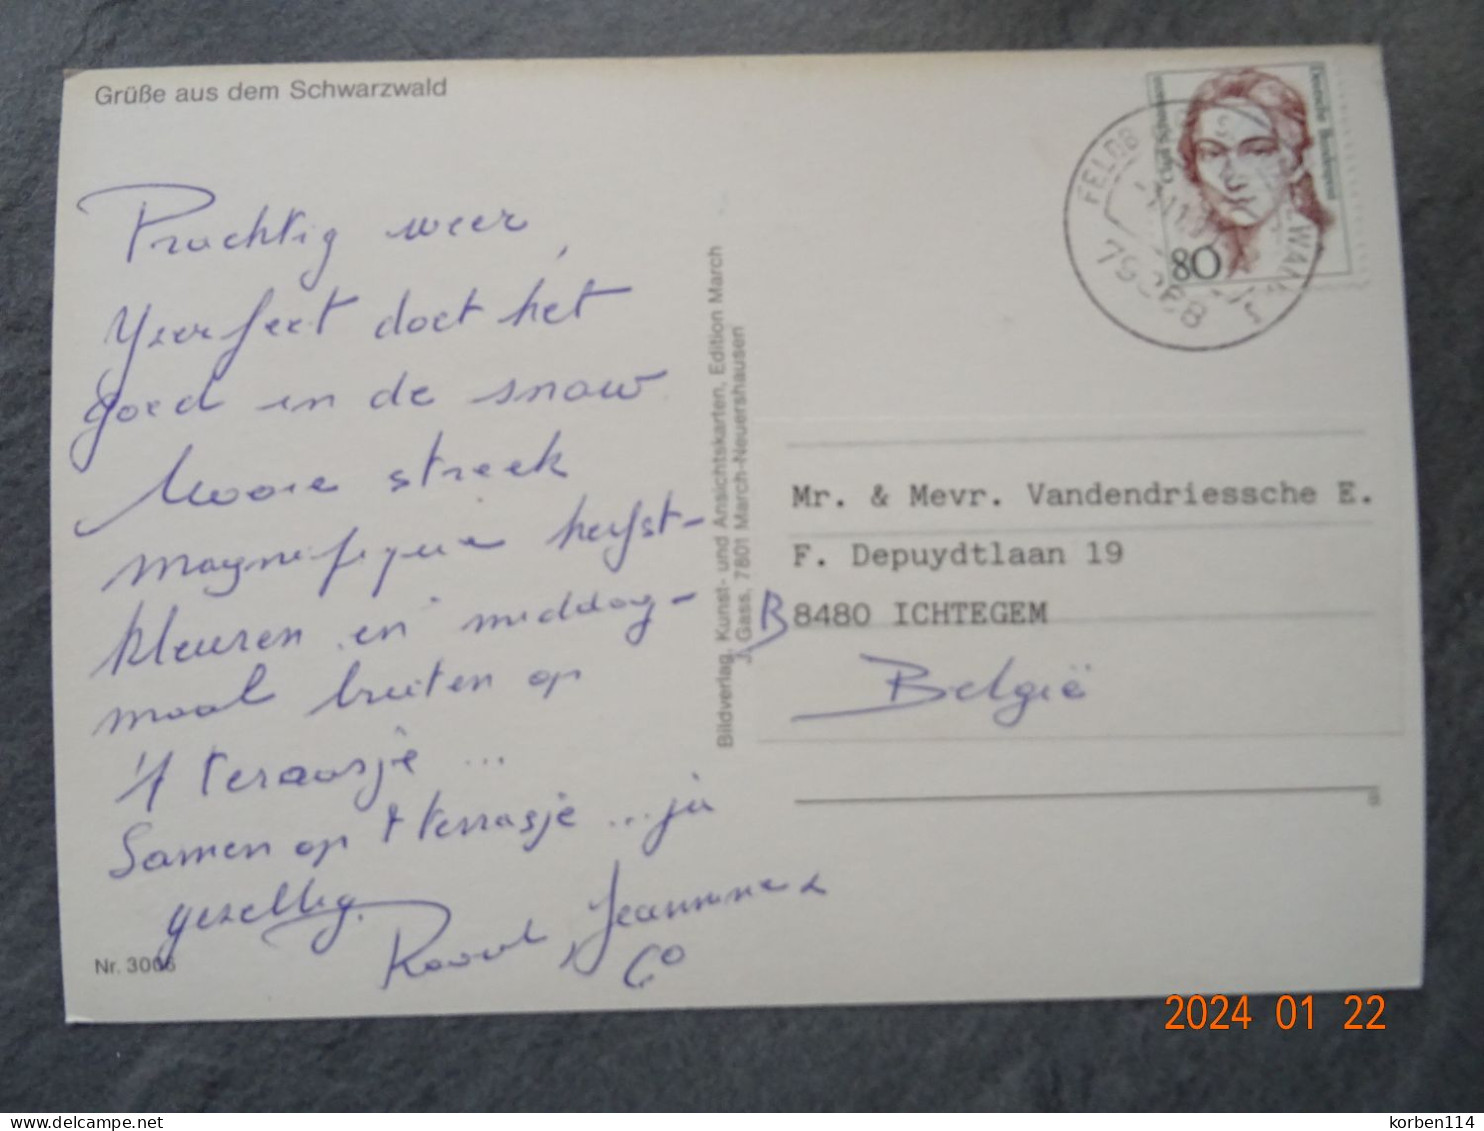 Grüße aus dem Schwarzwald
Prachtig weer,
goed en de snow
Mooie streek
magnefique herfst-
kleuren en middag-
maal buiten op
't teraasje ...
Samen op 't terrasje ... ja
gezellig.
Raoul, Jeannine &
Co
Nr. 3006
Bildverlag, Kunst- und Ansichtskarten, Edition March
J. Gass, 7801 March-Neuershausen
Deutsche Bundespost
80
FELDB
Mr. & Mevr. Vandendriessche E.
F. Depuydtlaan 19
B 8480 ICHTEGEM
België
2024 01 22
korben114